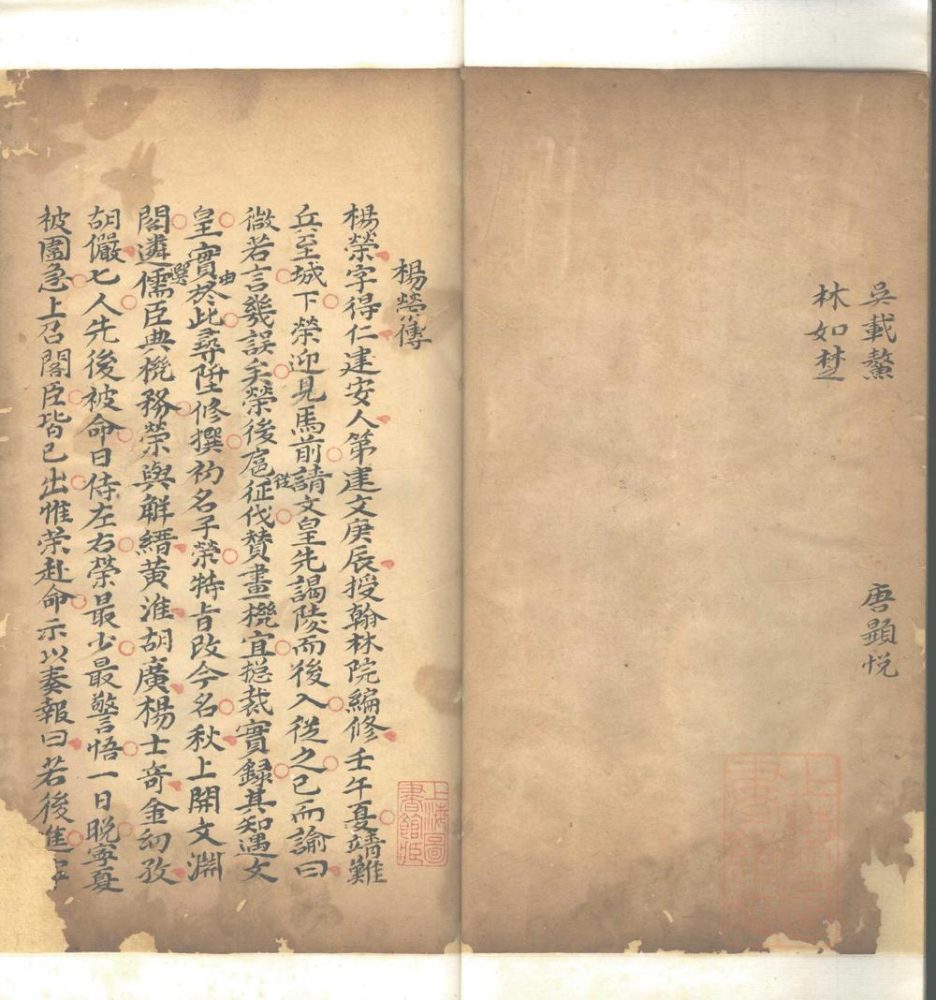 吳載鰲 唐顯悅
林如楚
楊榮傳
楊榮字得仁建安人第建文庚辰授翰林院編修壬午夏靖難
兵至城下榮迎見馬前請文皇先謁陵而後入從之已而諭曰
微若言幾誤矣榮後扈從征伐贊畫機宜揔裁實錄其知遇文
皇實由於此尋陞修撰初名子榮特旨改今名秋上開文淵
閣遴儒臣典機務榮與解縉黃淮胡廣楊士奇金幼孜
胡儼七人先後被命日侍左右榮最少最警悟一日晚寧夏
被圍急上召閣臣皆已出惟榮赴命示以奏報曰若後進
上海圖
書館藏